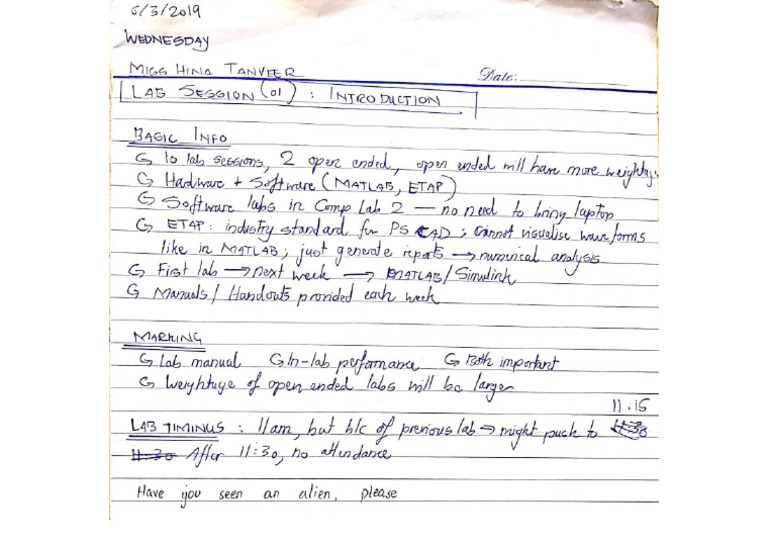 6/3/2019
WEDNESDAY
MISS HINA TANVEER
Date:
LAB SESSION (01) : INTRODUCTION
BASIC INFO
10 lab sessions, 2 open ended, open ended will have more weightage.
Hardware + Software (MATLAB, ETAP)
Software labs in Comp Lab 2 — no need to bring laptop
ETAP: industry standard for PS CAD; cannot visualise waveforms
like in MATLAB; just generate reports → numerical analysis
First lab → next week → MATLAB/Simulink
Manuals/Handouts provided each week
MARKING
Lab manual In-lab performance Both important
Weightage of open ended labs will be larger
11.15
LAB TIMINGS : 11am, but b/c of previous lab → might push to 11:30
11:30 After 11:30, no attendance
Have you seen an alien, please